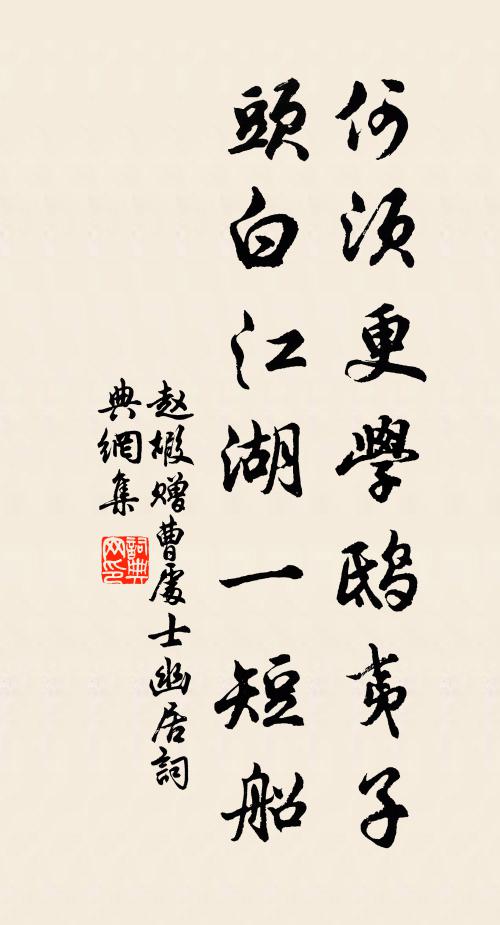 何須更學鴟夷子
頭白江湖一短船
赵嘏赠曹處士幽居詞
典網集
詞典
网印